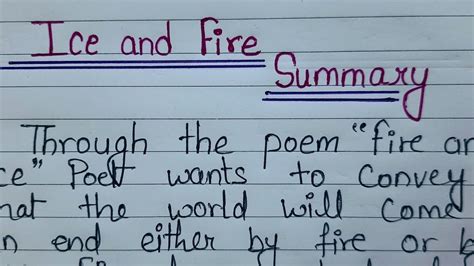 Ice and Fire
Summary
Through the poem "fire an
ce" Poet wants to convey
hat the world will come
n end either by fire or b